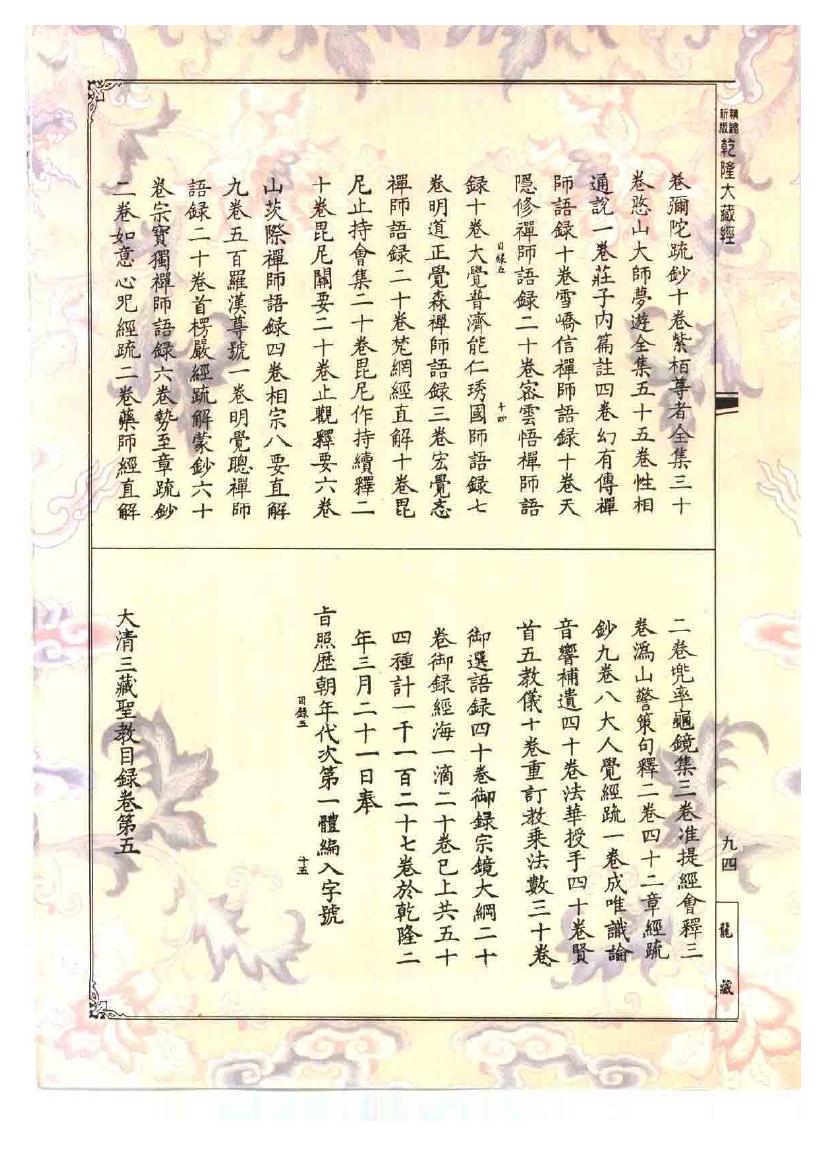 精縮新版 乾隆大藏經
卷彌陀疏鈔十卷紫栢尊者全集三十
卷憨山大師夢遊全集五十五卷性相
通說一卷莊子內篇註四卷幻有傳禪
師語録十卷雪嶠信禪師語録十卷天
隱修禪師語録二十卷密雲悟禪師語
目録五 十四
録十卷大覺普濟能仁琇國師語録七
卷明道正覺森禪師語録三卷宏覺忞
禪師語録二十卷梵網經直解十卷毘
尼止持會集二十卷毘尼作持續釋二
十卷毘尼關要二十卷止觀釋要六卷
山茨際禪師語録四卷相宗八要直解
九卷五百羅漢尊號一卷明覺聰禪師
語録二十卷首楞嚴經疏解蒙鈔六十
卷宗寶獨禪師語録六卷勢至章疏鈔
二卷如意心咒經疏二卷藥師經直解
二卷兜率龜鏡集三卷准提經會釋三
卷溈山警策句釋二卷四十二章經疏
鈔九卷八大人覺經疏一卷成唯識論
音響補遺四十卷法華授手四十卷賢
首五教儀十卷重訂教乘法數三十卷
御選語録四十卷御録宗鏡大綱二十
卷御録經海一滴二十卷已上共五十
四種計一千一百二十七卷於乾隆二
年三月二十一日奉
旨照歷朝年代次第一體編入字號
目録五 十五
大清三藏聖教目録卷第五
九四
龍藏